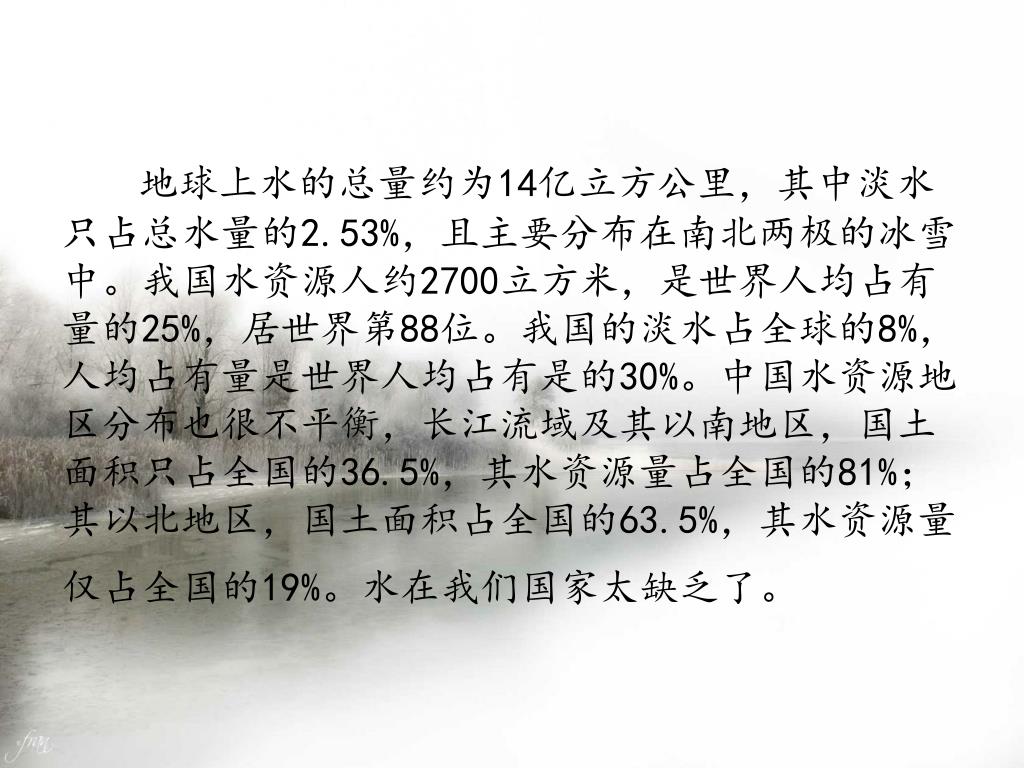 地球上水的总量约为14亿立方公里，其中淡水
只占总水量的2.53%，且主要分布在南北两极的冰雪
中。我国水资源人约2700立方米，是世界人均占有
量的25%，居世界第88位。我国的淡水占全球的8%，
人均占有量是世界人均占有是的30%。中国水资源地
区分布也很不平衡，长江流域及其以南地区，国土
面积只占全国的36.5%，其水资源量占全国的81%；
其以北地区，国土面积占全国的63.5%，其水资源量
仅占全国的19%。水在我们国家太缺乏了。
fran